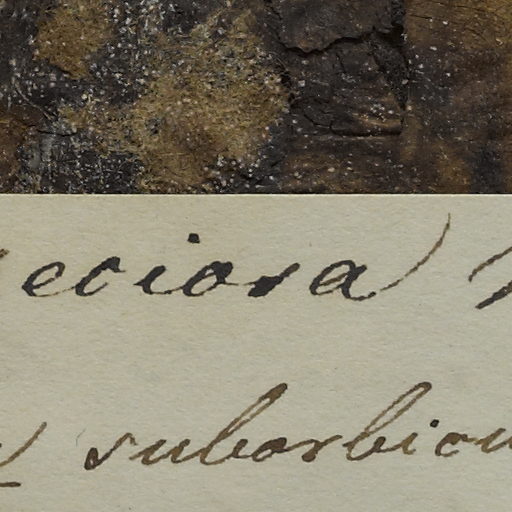 eciosa
suborbicu